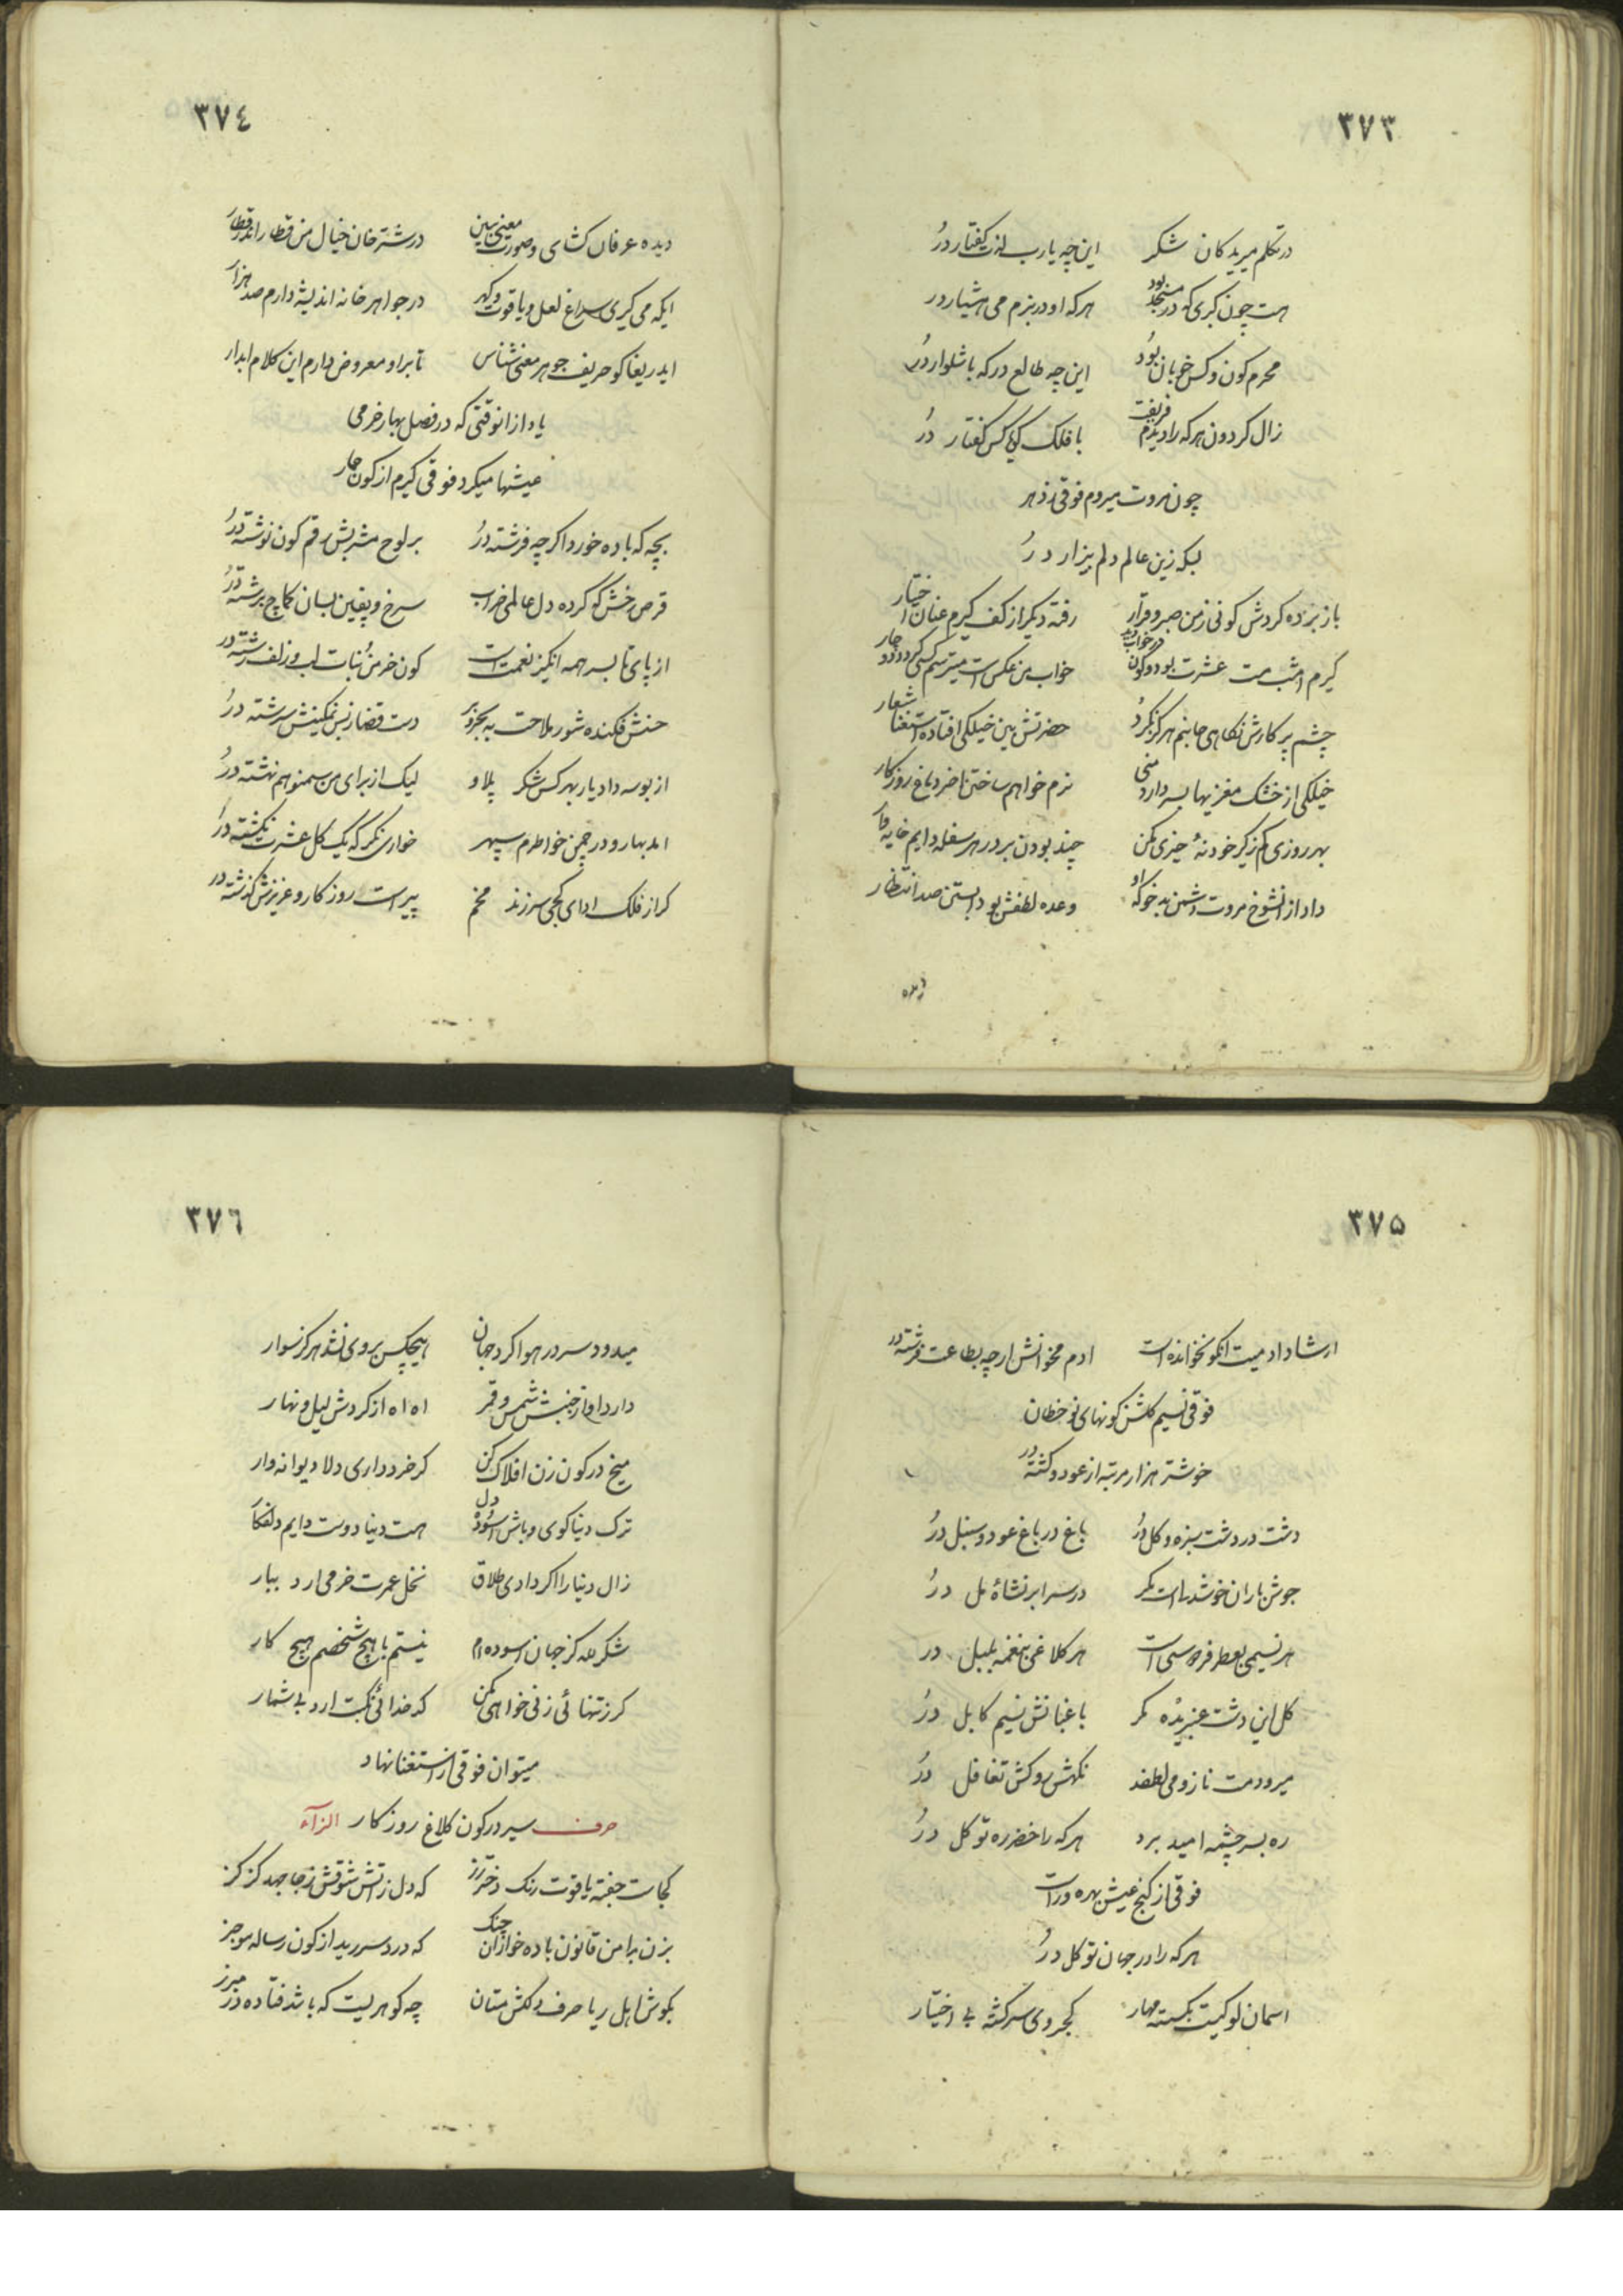 ۳۷۳
در تکلم میریدکان شکر این چه یارب لذت کفتار درُ
هست چون بکری که در مسجد بود هرکه او در بزم می هشیار در
محرم کون و کس خوبان بُودُ این چه طالع درکه باشلوار درُ
زال کردون هرکه را دیدم فریفت با فلک کس کفتار درُ
چون مروت میردم فوقی ز دهر
بسکه زین عالم دلم بیزار درُ
باز برده کردش کونی ز من صبر و قرار رفته دیکر از کف کیرم عنان اختیار
کیرم امشب مست عشرت بود در خواب خواب من عکس است میترسم کسی
چشم پر کارش نکاهی جانبم هرکز نکرد حضرتش بین خیلکی افتاده استغنا شعار
خیلکی از خشک مغزیها بسر دارد منی نرم خواهم ساختن ناخر دماغ روزکار
بهر روزی کم ز کیر خود نهٔ خیزی بکن چند بودن بر در هر سفله دایم خایه
داد از آنشوخ مروت دشمن بدخو که او وعده لطفش بود بستن صد انتظار
دیده
۳۷٤
دیده عرفان کشای و صورت معنی ببین در شترخان خیال من قطار اندر قطار
ایکه می کیری سراغ لعل و یاقوت و کهر در جواهرخانه اندیشه دارم صد هزار
ایدریغا کو حریف جوهر معنی شناس تا بر او معروض دارم این کلام ابدار
یاد از انوقتی که در فصل بهار خرمی
عیشها میکرد فوقی کیرم از کون حمار
بچه که باده خورد اکرچه فرشته درُ بر لوح مشربش رقم کون نوشته درُ
قرص رخش که کرده دل عالمی خراب سرخ و پفین بسان کماچ برشته درُ
از پای تا بسر همه انکیز نعمت است کون خرمن نبات لب و زلف رشته در
حسنش فکنده شور ملاحت به بحر و بر دست قضا ز بس نمکینش سرشته درُ
از بوسه داد یار بهر کس شکر پلاو لیک از برای من سمنو هم نهشته درُ
امد بهار و در چمن خواطرم سپهر خواری نکر که یک کل عشرت نکشته درُ
کر از فلک ادای کجی سرزند مخم پیر است روزکار و عزیزش کذشته در
۳۷۵
ارشاد ادمیت انکو نخوانده است ادم مخوانش ارچه بطاعت فرشته در
فوقی نسیم کلشن کونهای نوخطان
خوشتر هزار مرتبه از عود و کشته در
دشت در دشت سبزه و کل درُ باغ در باغ عود و سنبل درُ
جوش باران خوشدلی است مکر در سر ابر نشاهٔ مل درُ
هر نسیمی بعطر فردوسی است هر کلاغی بنغمه بلبل در
کل این دشت عنبریده مکر باغبانش نسیم کابل درُ
میرود مست ناز و می لطفد نکهش روکش تغافل درُ
ره بسر چشمه امید برد هرکه را خضر ره توکل درُ
فوقی از کنج عیش بهره ور است
هرکه را در جهان توکل درُ
اسمان لوکیست بکسسته مهار کجروی سرکشته بی اختیار
۳۷٦
میدود سر در هوا کرد جهان هیچکس بر وی نشد هرکز سوار
دارد اواز جنبش شمس و قمر اه اه از کردش لیل و نهار
میخ در کون زن افلاک کن کر خرد داری دلا دیوانه وار
ترک دنیا کوی و باش اسوده دل هست دنیا دوست دایم دلفکار
زال دنیا را اکر دادی طلاق نخل عمرت خرمی ارد ببار
شکر لله کز جهان اسوده ام نیستم با هیچ شخصم هیچ کار
کر ز تنهائی زنی خواهی مکن کدخدائی نکبت ارد بی شمار
میتوان فوقی از استغنا نهاد
سیر در کون کلاغ روزکار
حرف الزآء
کجاست جفته یاقوت رنک دختر رز که دل ز اتش شوقش ز جا جهد کز کز
بزن بدامن قانون باده خواران چنک که درد سر رید از کون رساله موجز
بکوش اهل ریا حرف دلکش مستان چه کوهریست که باشد فتاده در مبرز